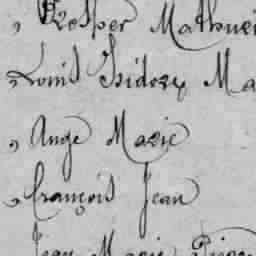 , Prosper Mathuri
, Louis Isidore Ma
, Ange Marie
, François Jean
Jean Marie